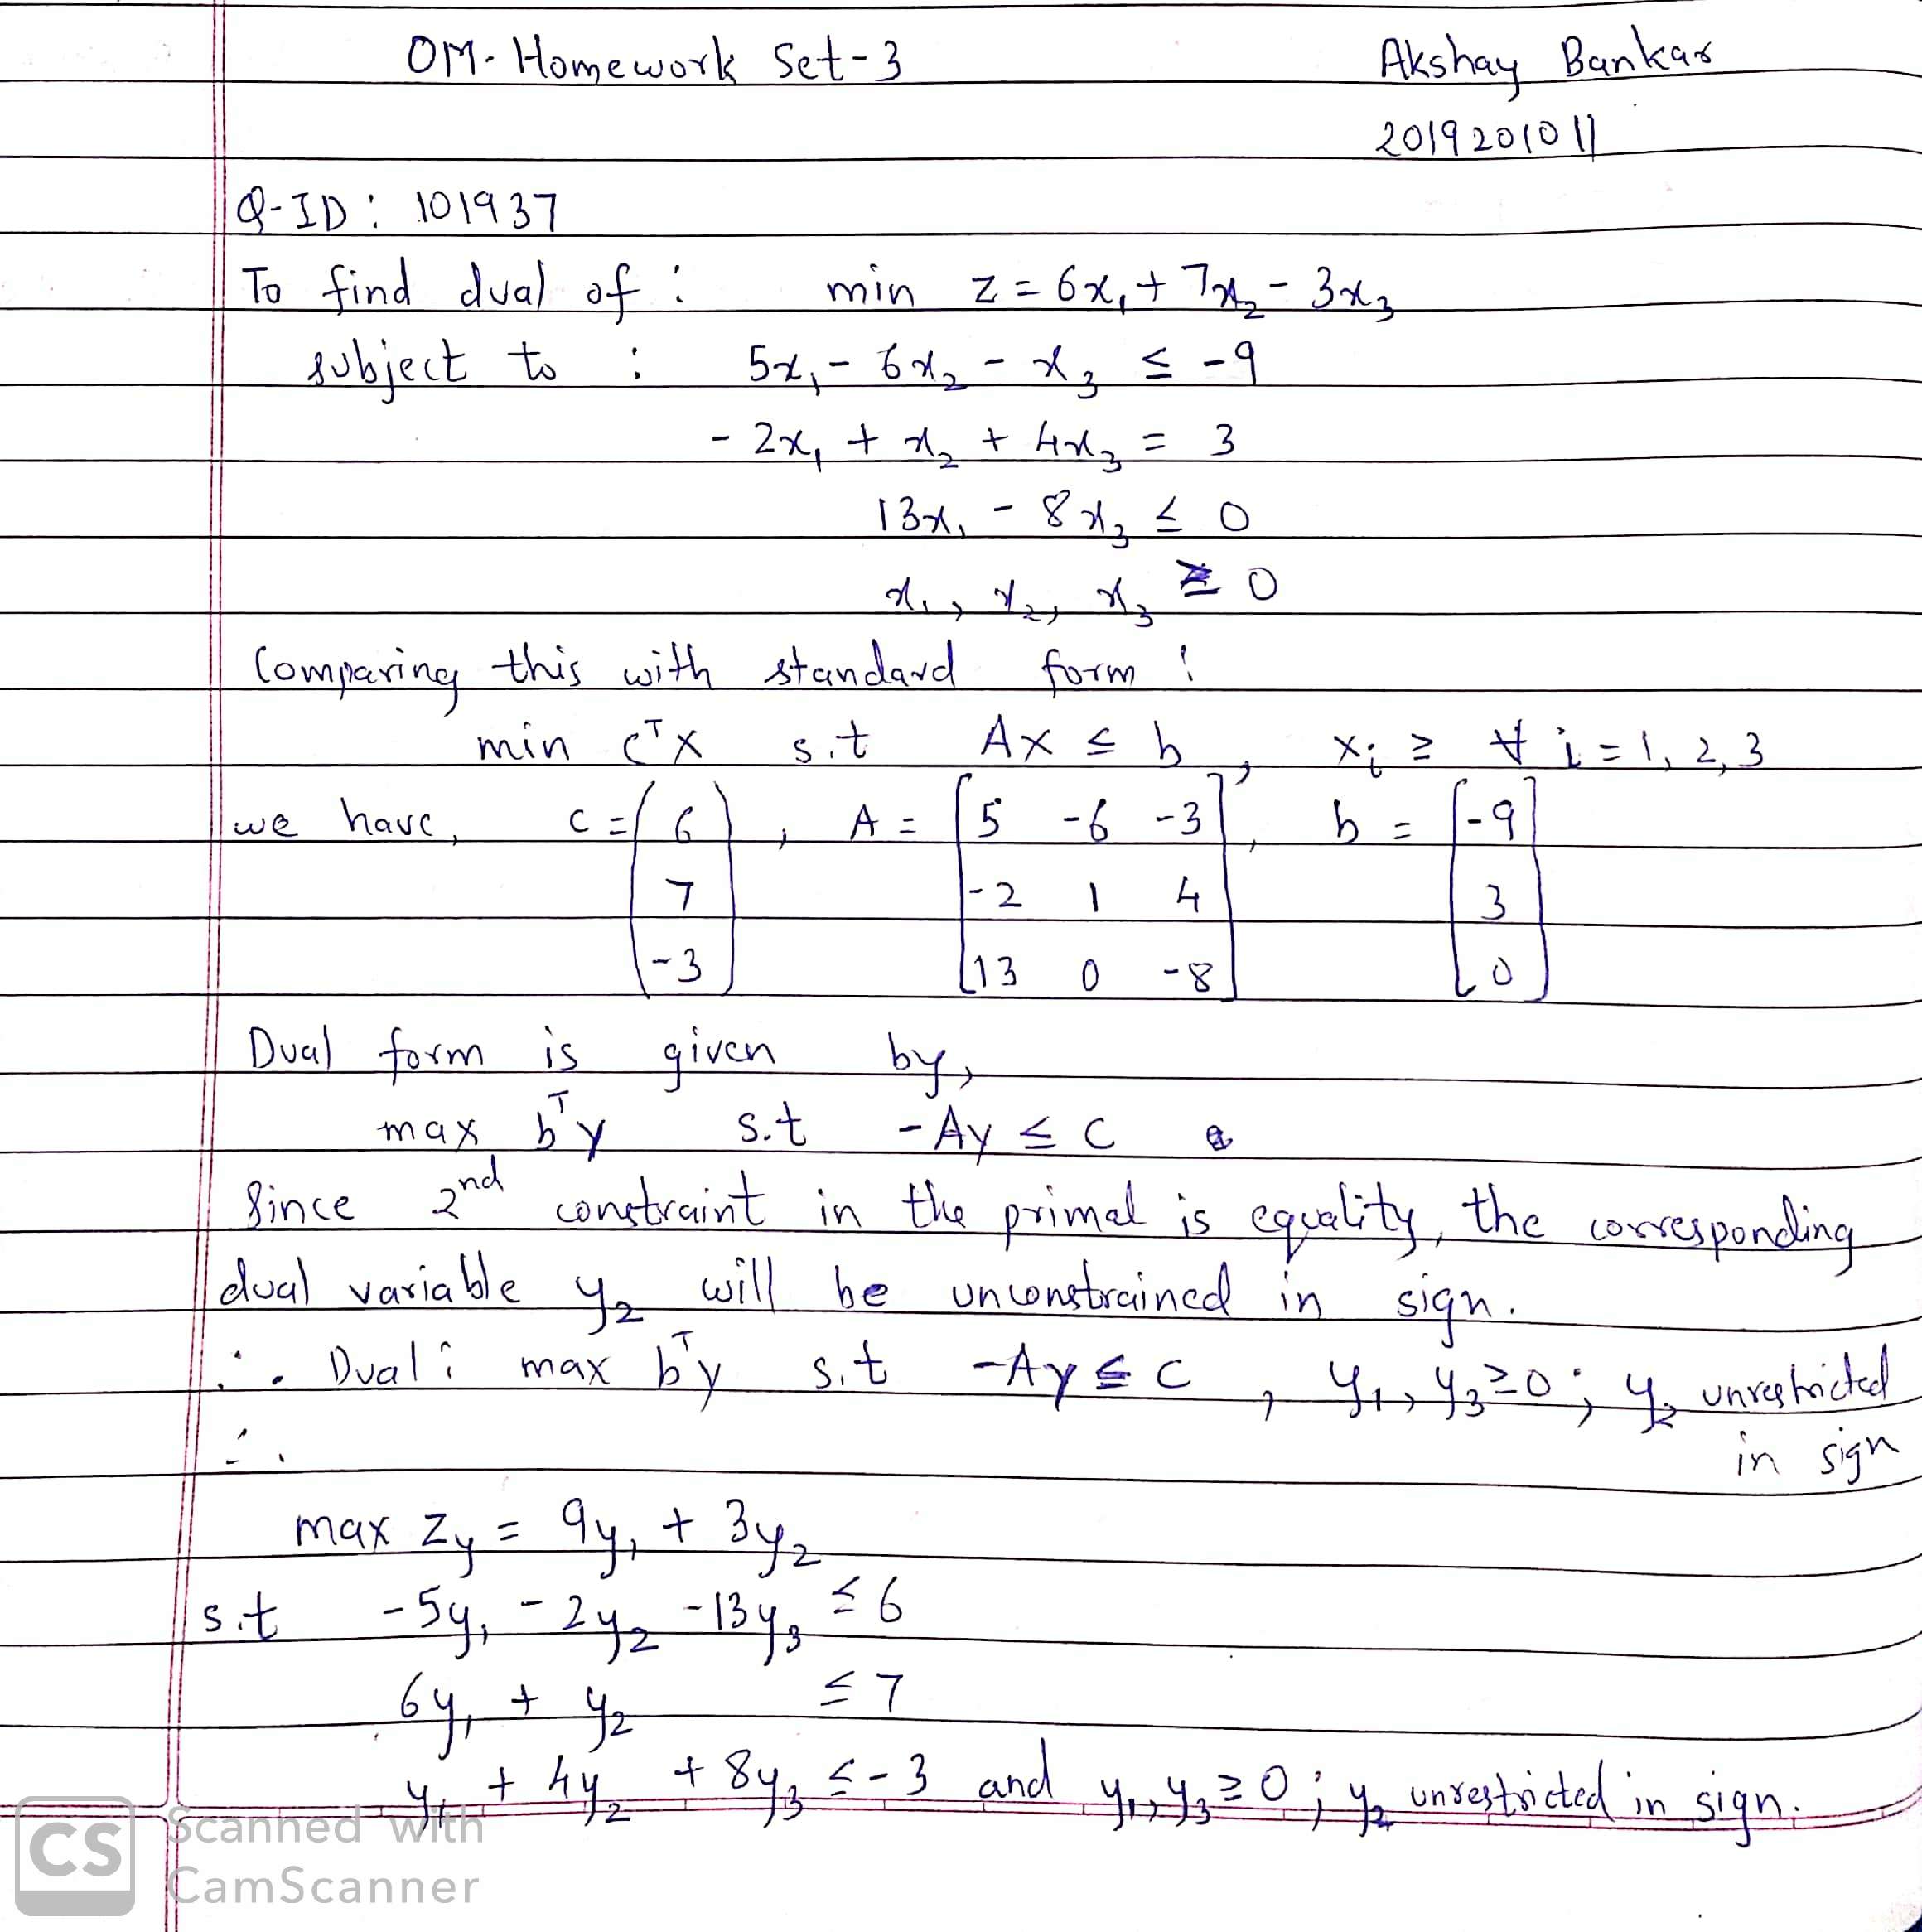 OM- Homework Set-3
Akshay Bankar
2019201011
Q-ID: 101937
To find dual of : min z = 6x₁ + 7x₂ - 3x₃
subject to : 5x₁ - 6x₂ - x₃ ≤ -9
- 2x₁ + x₂ + 4x₃ = 3
13x₁ - 8x₃ ≤ 0
x₁, x₂, x₃ ≥ 0
Comparing this with standard form :
min cᵀx s.t Ax ≤ b, xᵢ ≥ ∀ i = 1, 2, 3
we have, c = (6 , A = [5 -6 -3], b = [-9
7 -2 1 4 3
-3) 13 0 -8 0]
Dual form is given by,
max bᵀy s.t - Ay ≤ c
Since 2nd constraint in the primal is equality, the corresponding
dual variable y₂ will be unconstrained in sign.
∴ Dual : max bᵀy s.t -Ay ≤ c , y₁, y₃ ≥ 0 ; y₂ unrestricted
in sign
∴
max Zy = 9y₁ + 3y₂
s.t -5y₁ - 2y₂ -13y₃ ≤ 6
6y₁ + y₂ ≤ 7
y₁ + 4y₂ + 8y₃ ≤ -3 and y₁, y₃ ≥ 0 ; y₂ unrestricted in sign.
CS Scanned with
CamScanner